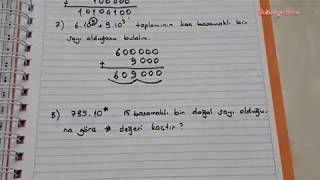 + 100000
10100100
7) 6.10⁵ + 9.10³ toplamının kaç basamaklı bir
sayı olduğunu bulalım.
600000
+ 9000
609000
8) 789.10* 15 basamaklı bir doğal sayı olduğu
na göre * değeri kaçtır?